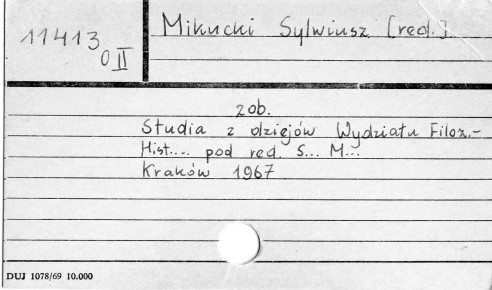 11413
O II
Mikucki Sylwiusz [red.]
zob.
Studia z dziejów Wydziału Filoz.-
Hist.... pod red. S... M...
Kraków 1967
DUJ 1078/69 10.000